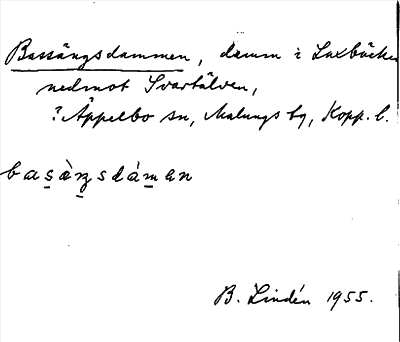 Bassängsdammen, damm i Laxbäcken
nedmot Svartälven,
? Äppelbo sn, Malungs tg, Kopp. l.
basàŋsdáman
B. Lindén 1955.